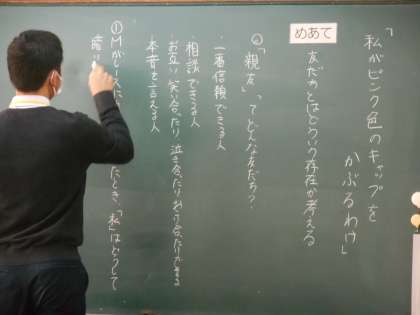 「私がピンク色のキャップを
かぶるわけ」
めあて
友だちとはどういう存在か考える
◎「親友」ってどんな友だち?
一番信頼できる人
相談できる人
お互い笑い合ったり泣き合ったりおこり合ったりできる
本音を言える人
①Mがレースに たとき、「私」はどうして